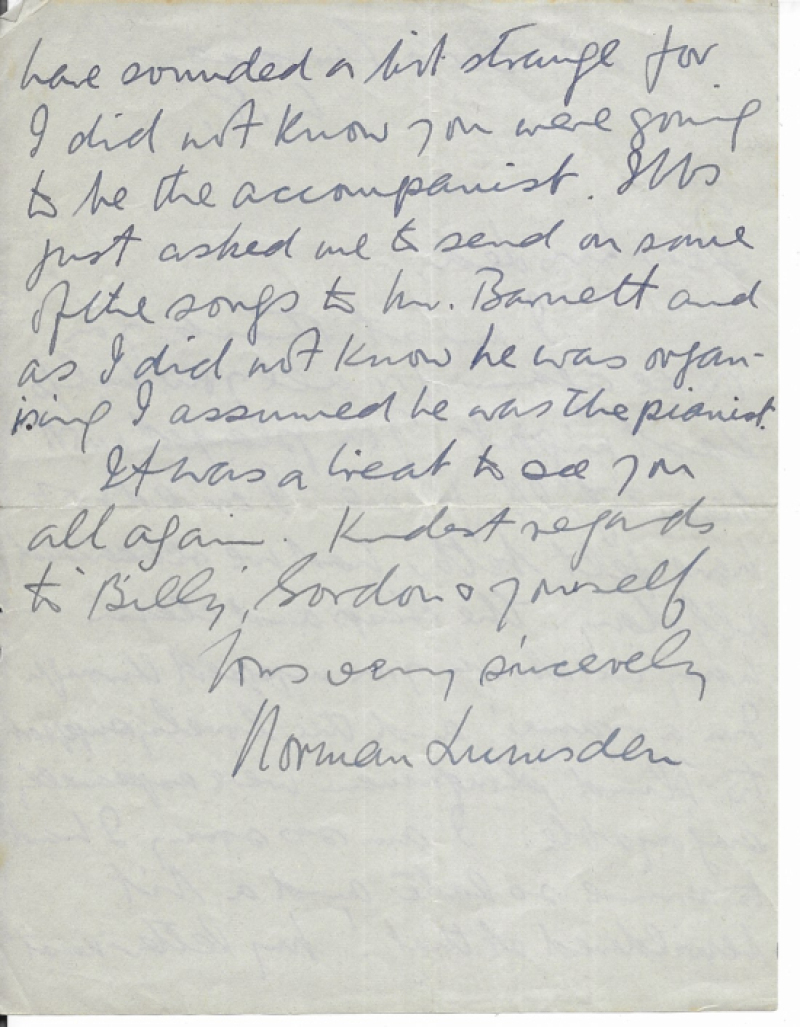 have sounded a bit strange for
I did not know you were going
to be the accompanist.
just asked me to send on some
of the songs to Mr. Barnett and
as I did not know he was organ-
ising I assumed he was the pianist.
It was a treat to see you
all again. Kindest regards
to Billy, Gordon & yourself
Yours very sincerely
Norman Lumsden